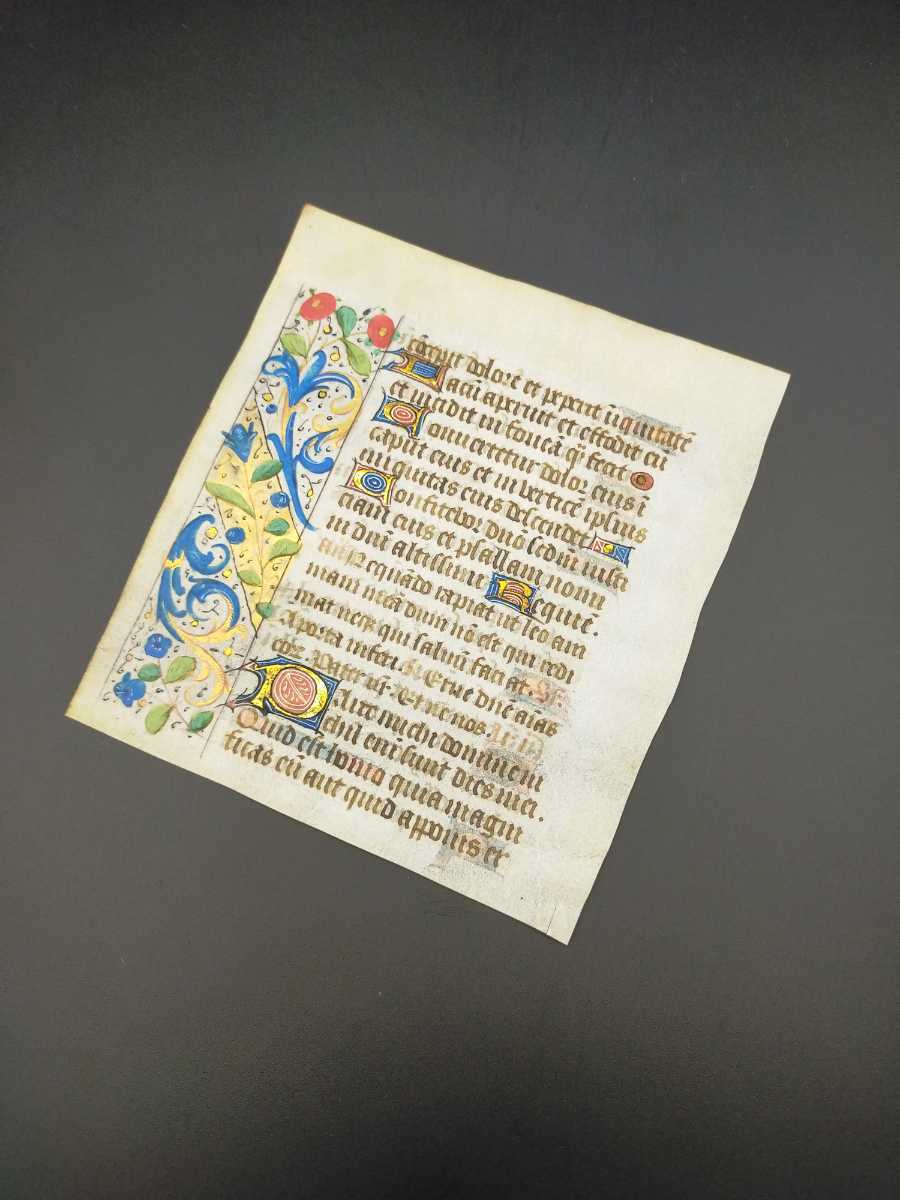 cepit dolorē et pep̄erit iniquitatē
Lacū aperuit et effodit eū
et incidit in foueā quā fecit
Conuertetur dolor eius i
caput eius et in verticē ipsius
iniquitas eius descendet
Confitebor dño scdm̄ iusti
ciam eius et psallam nomi
ni dñi altissimi Requiē.
Nequādo rapiat ut leo am
mam meā dum nō est qui redi
mat neqz qui saluū faci at
A porta inferi. Erue dñe aīas
eoz. Pater nr̄. Et ne nos.
Parce michi domine ni
chil enī sunt dies mei.
Quid est homo quia magni
ficas eū aut quid apponis er